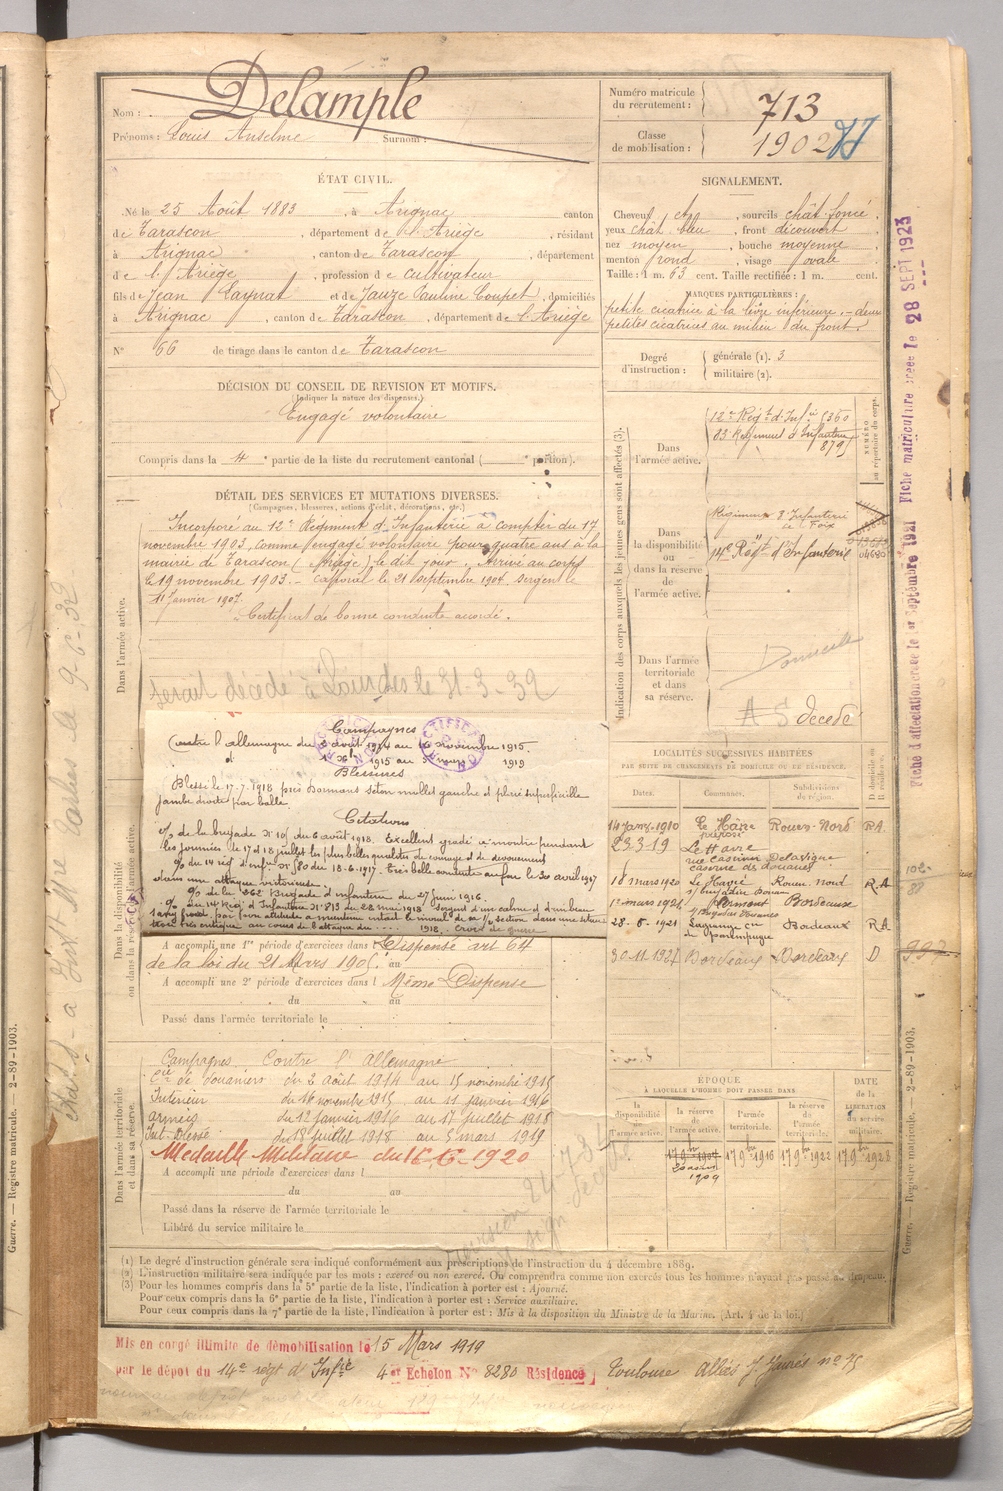 Nom : Delample
Prénoms : Louis Anselme Surnom :
Numéro matricule
du recrutement : 713
Classe
de mobilisation : 1902
ÉTAT CIVIL.
Né le 25 Août 1883, à Arignac canton
de Tarascon, département de l'Ariège, résidant
à Arignac, canton de Tarascon département
de l'Ariège, profession de cultivateur
fils de Jean Paynat et de Jauze Pauline Coupet, domiciliés
à Arignac, canton de Tarascon, département de l'Ariège
N° 66 de tirage dans le canton de Tarascon
SIGNALEMENT.
Cheveux, sourcils chât. foncé
yeux chât. bleu, front découvert
nez moyen, bouche moyenne
menton rond, visage ovale
Taille : 1 m. 63 cent. Taille rectifiée : 1 m. cent.
MARQUES PARTICULIÈRES :
petite cicatrice à la lèvre inférieure - deux
petites cicatrices au milieu du front
Degré
d'instruction :
générale (1). 3
militaire (2).
DÉCISION DU CONSEIL DE REVISION ET MOTIFS.
(Indiquer la nature des dispenses.)
Engagé volontaire
Compris dans la 4e partie de la liste du recrutement cantonal ( portion).
DÉTAIL DES SERVICES ET MUTATIONS DIVERSES.
(Campagnes, blessures, actions d'éclat, décorations, etc.)
Dans l'armée active.
Incorporé au 12e Régiment d'Infanterie à compter du 17
novembre 1903, comme engagé volontaire pour quatre ans à la
mairie de Tarascon (Ariège) le dit jour. Arrivé au corps
le 19 novembre 1903 - Caporal le 21 septembre 1904. Sergent le
11 janvier 1907.
Certificat de bonne conduite accordé.
Serait décédé à Lourdes le 31-3-32
Indication des corps auxquels les jeunes gens sont affectés (3).
NUMÉRO
au répertoire du corps.
Dans
l'armée active.
12e Régt d'Infie 5360
83 Régiment d'Infanterie
8795
Dans
la disponibilité
ou
dans la réserve
de
l'armée active.
Régiment d'Infanterie
de Foix
14e Régt d'Infanterie
Dans l'armée
territoriale
et dans
sa réserve.
Domicile
AS décédé
Campagnes
Contre l'Allemagne du 2 août 1914 au 15 novembre 1915.
1915 au 1919
Blessures
Blessé le 17-7-1918 près Dormans séton mollet gauche et plaie superficielle
jambe droite par balle.
Citations
O/ de la brigade N° 105 du 6 août 1918. Excellent gradé a montré pendant
les journées de 17 et 18 juillet les plus belles qualités de courage et de dévouement
O/ du 14 rég. d'infie N° 580 du 18-6-1917. Très belle conduite au feu le 30 avril 1917
dans une attaque victorieuse.
O/ de la 262 Brigade d'infanterie du 27 juin 1916.
O/ du 14 Régt d'Infanterie N° 813 du 28 mai 1918 Sergent d'un calme et d'un beau
sang froid, par fière attitude a maintenu intact le moral de sa 1/2 section dans une situa
tion très critique au cours de l'attaque du .... 1918. Croix de guerre
Dans la disponibilité
ou dans la réserve de l'armée active.
A accompli une 1re période d'exercices dans l Dispensé art 64
de la loi du 21 Mars 1905. au
A accompli une 2e période d'exercices dans l Même Dispense
du au
Passé dans l'armée territoriale le
LOCALITÉS SUCCESSIVES HABITÉES
PAR SUITE DE CHANGEMENTS DE DOMICILE OU DE RÉSIDENCE.
Dates. Communes. Subdivisions de région. D domicile ou R résidence.
14 janv. 1910 Le Hâvre Rouen-Nord RA
23 3 19 Le Havre
rue Casimir Delavigne
caserne des douanes
18 mars 1920 Le Havre Rouen nord R.A
1er mars 1921 Bordeaux
28-8-1921 Lagrange cne
de parempuyre Bordeaux RA
30 11 1927 Bordeaux Bordeaux D
Dans l'armée territoriale
et dans sa réserve.
Campagnes Contre l'Allemagne
Cie de douaniers du 2 août 1914 au 15 novembre 1915
Intérieur du 16 novembre 1915 au 11 janvier 1916
armées du 12 janvier 1916 au 17 juillet 1918
Int. Blessé du 18 juillet 1918 au 5 mars 1919
Médaille Militaire du 16-6-1920
A accompli une période d'exercices dans l
du au
Passé dans la réserve de l'armée territoriale le
Libéré du service militaire le
ÉPOQUE
À LAQUELLE L'HOMME DOIT PASSER DANS
la disponibilité de l'armée active.
la réserve de l'armée active.
l'armée territoriale.
la réserve de l'armée territoriale.
DATE
de la
LIBÉRATION
du service
militaire.
17 9bre 1907
17 9bre 1916
17 9bre 1922
17 9bre 1928
1909
(1) Le degré d'instruction générale sera indiqué conformément aux prescriptions de l'instruction du 4 décembre 1889.
(2) L'instruction militaire sera indiquée par les mots : exercé ou non exercé. On comprendra comme non exercés tous les hommes n'ayant pas passé au drapeau.
(3) Pour les hommes compris dans la 5e partie de la liste, l'indication à porter est : Ajourné.
Pour ceux compris dans la 6e partie de la liste, l'indication à porter est : Service auxiliaire.
Pour ceux compris dans la 7e partie de la liste, l'indication à porter est : Mis à la disposition du Ministre de la Marine. (Art. 4 de la loi.)
MIS en congé illimité de démobilisation le 15 Mars 1919
par le dépôt du 14e régt d'Infie 4er Echelon N° 8280 Résidence Toulouse Allées J. Jaurès no 75
Fiche d'affectation créée le 1er Septembre 1921 Fiche matriculaire créée le 28 SEPT 1923
Guerre. — Registre matricule. 2-89-1903.
Guerre. — Registre matricule. 2-89-1903.